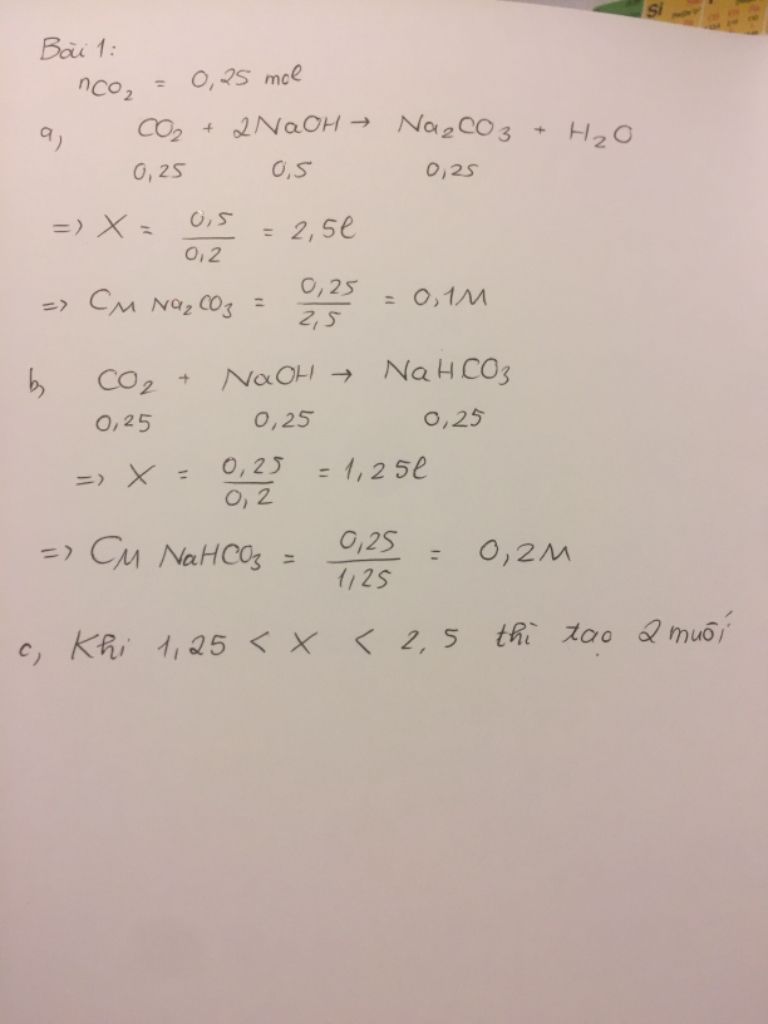 Bài 1:
nCO₂ = 0,25 mol
a, CO₂ + 2NaOH → Na₂CO₃ + H₂O
0,25 0,5 0,25
=> X = 0,5/0,2 = 2,5l
=> CM Na₂CO₃ = 0,25/2,5 = 0,1M
b, CO₂ + NaOH → NaHCO₃
0,25 0,25 0,25
=> X = 0,25/0,2 = 1,25l
=> CM NaHCO₃ = 0,25/1,25 = 0,2M
c, Khi 1,25 < X < 2,5 thì tạo 2 muối
Si